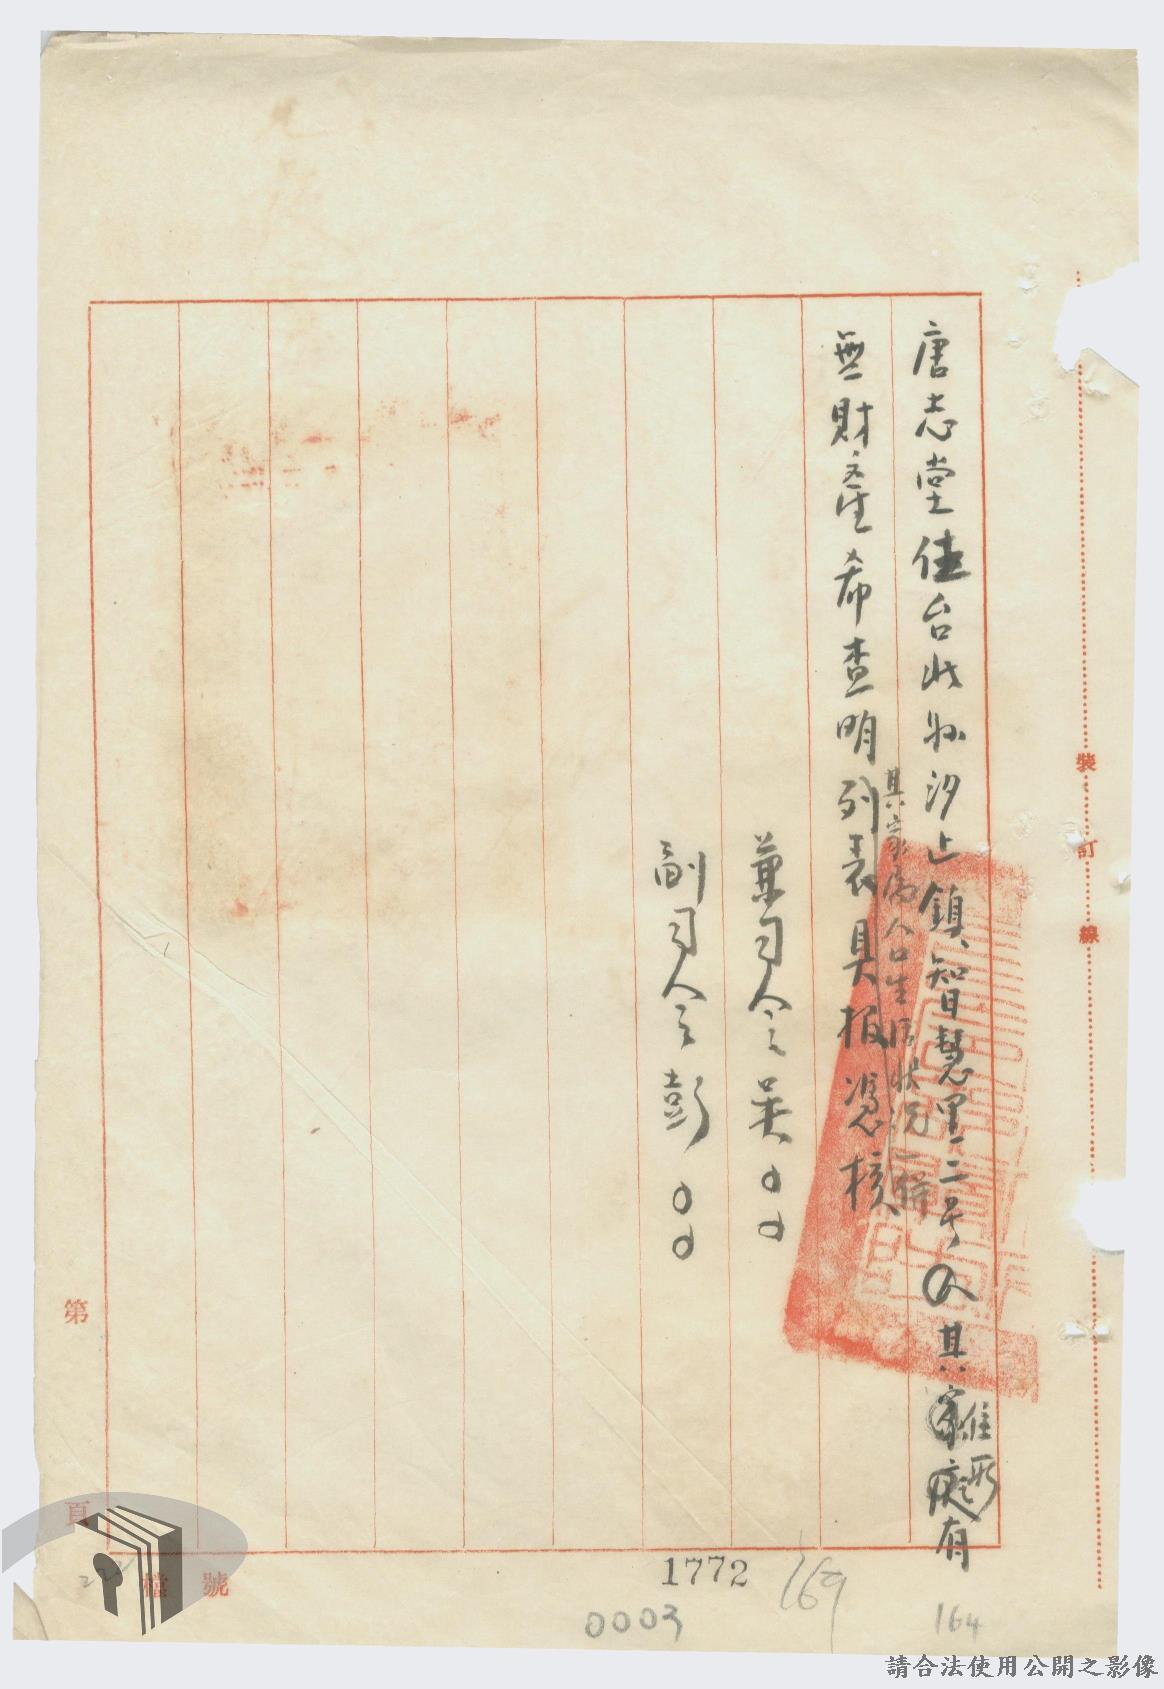 唐志堂住台北縣汐止鎮智慧里一二号
其家
有
無財產希查明列表具報憑核
其家屬人口生活狀況一併
兼司令吳〇〇
副司令彭〇〇
裝訂線
第
頁
檔號
1772
169
0003
164
請合法使用公開之影像